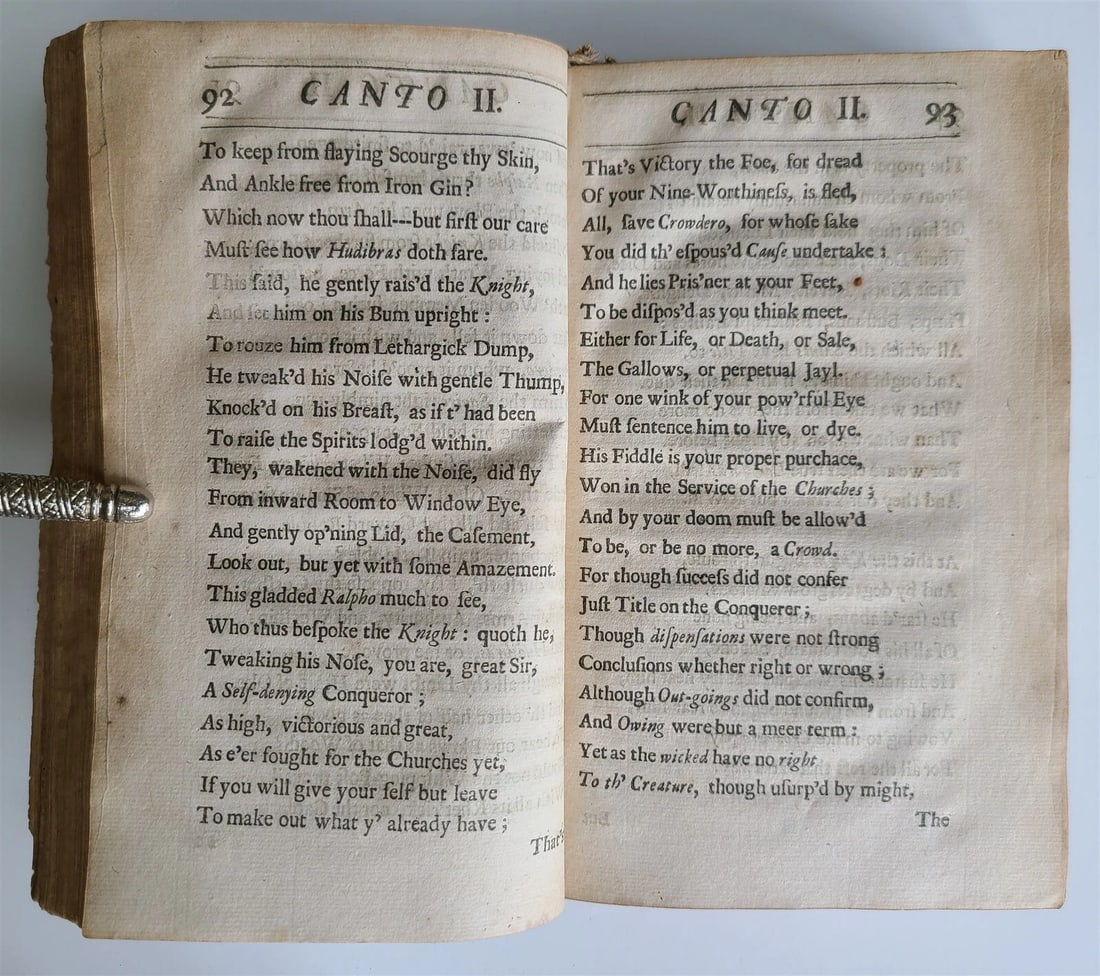 92 CANTO II.
To keep from flaying Scourge thy Skin,
And Ankle free from Iron Gin?
Which now thou ſhall---but firſt our care
Muſt ſee how Hudibras doth fare.
This ſaid, he gently rais'd the Knight,
And ſet him on his Bum upright :
To rouze him from Lethargick Dump,
He tweak'd his Noiſe with gentle Thump,
Knock'd on his Breaſt, as if t' had been
To raiſe the Spirits lodg'd within.
They, wakened with the Noiſe, did fly
From inward Room to Window Eye,
And gently op'ning Lid, the Caſement,
Look out, but yet with ſome Amazement.
This gladded Ralpho much to ſee,
Who thus beſpoke the Knight : quoth he,
Tweaking his Noſe, you are, great Sir,
A Self-denying Conqueror ;
As high, victorious and great,
As e'er fought for the Churches yet,
If you will give your ſelf but leave
To make out what y' already have ;
That's
CANTO II. 93
That's Victory the Foe, for dread
Of your Nine-Worthineſs, is fled,
All, ſave Crowdero, for whoſe ſake
You did th' eſpous'd Cauſe undertake :
And he lies Pris'ner at your Feet,
To be diſpos'd as you think meet.
Either for Life, or Death, or Sale,
The Gallows, or perpetual Jayl.
For one wink of your pow'rful Eye
Muſt ſentence him to live, or dye.
His Fiddle is your proper purchace,
Won in the Service of the Churches ;
And by your doom muſt be allow'd
To be, or be no more, a Crowd.
For though ſucceſs did not confer
Juſt Title on the Conquerer ;
Though diſpenſations were not ſtrong
Concluſions whether right or wrong ;
Although Out-goings did not confirm,
And Owing were but a meer term :
Yet as the wicked have no right
To th' Creature, though uſurp'd by might,
The